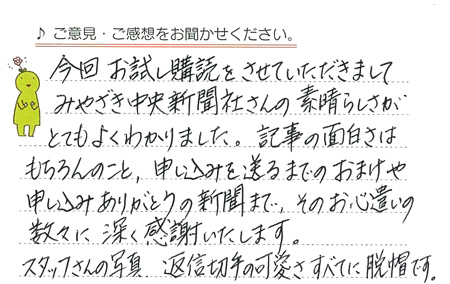 ♪ ご意見・ご感想をお聞かせください。
今回 お試し購読をさせていただきまして
みやざき中央新聞社さんの 素晴らしさが
とてもよくわかりました。記事の面白さは
もちろんのこと、申し込みを送るまでのおまけや
申し込みありがとうの新聞まで、そのお心遣いの
数々に 深く感謝いたします。
スタッフさんの写真 返信切手の可愛さ すべてに脱帽です。